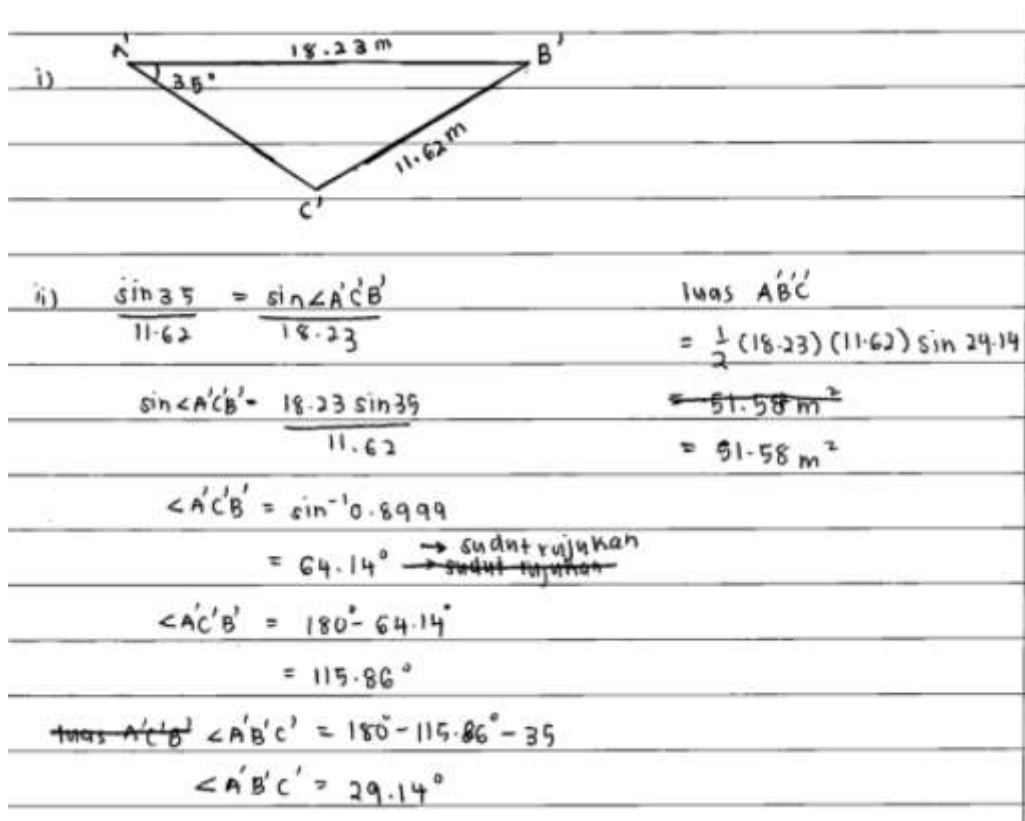 i)
A'
18.23 m
B'
35°
11.62 m
C'
ii)
sin 35 / 11.62 = sin∠A'C'B' / 18.23
sin∠A'C'B' = 18.23 sin 35 / 11.62
∠A'C'B' = sin⁻¹ 0.8999
= 64.14° → sudut rujukan
→ sudut rujukan
∠A'C'B' = 180° - 64.14°
= 115.86°
luas A'C'B' ∠A'B'C' = 180° - 115.86° - 35
∠A'B'C' = 29.14°
luas A'B'C'
= 1/2 (18.23) (11.62) sin 29.14
= 51.58 m²
= 51.58 m²